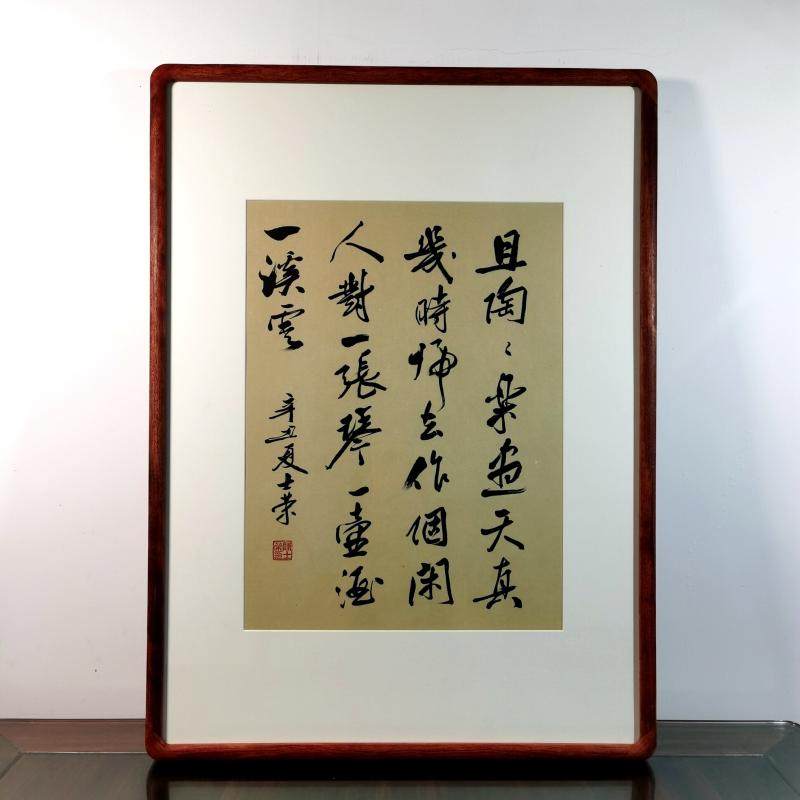 且陶〻樂盡天真
幾時歸去作個閑
人對一張琴一壺酒
一溪雲
辛丑夏士荣